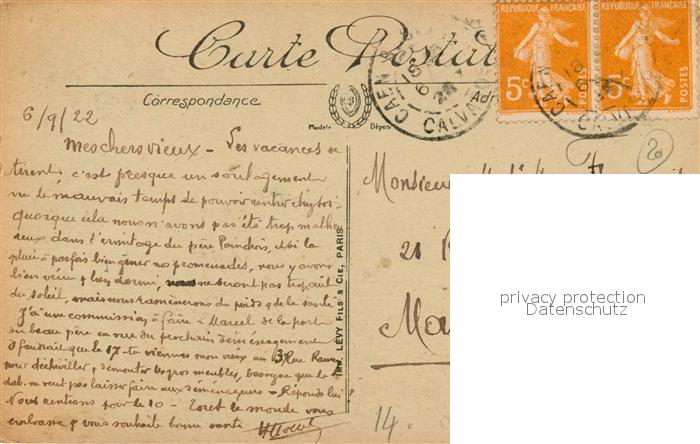 Carte Postale
RÉPUBLIQUE FRANÇAISE
RÉPUBLIQUE FRANÇAISE
5c
5c
CAEN
CALVADOS
Correspondance
Modèle Déposé
20
6/9/22
Mes chers vieux - Les vacances se
tirent; c'est presque un soulagement
vu le mauvais temps de pouvoir rentrer chez soi -
quoique cela nous n'avons pas été trop malheu
reux dans l'ermitage du père Painchois, et si la
pluie a parfois bien gêner nos promenades, nous y avons
bien vécu & bien dormi, nous ne seront pas trop cuit
du soleil, mais nous ramènerons du poids & de la santé
J'ai une commission à faire à Marcel de la part
du beau père en vue du prochain déménagement
il faudrait que le 17 tu viennes mon vieux au 3 Rue
pour décheviller & démonter les gros meubles, besogne que le
ne veut pas laisser faire aux déménageurs - Réponds lui
Nous rentrons pour le 10 - Tout le monde vous
embrasse & vous souhaite bonne santé
Monsieur
21
Ma
14.
IMP. LÉVY FILS & CIE, PARIS
privacy protection
Datenschutz